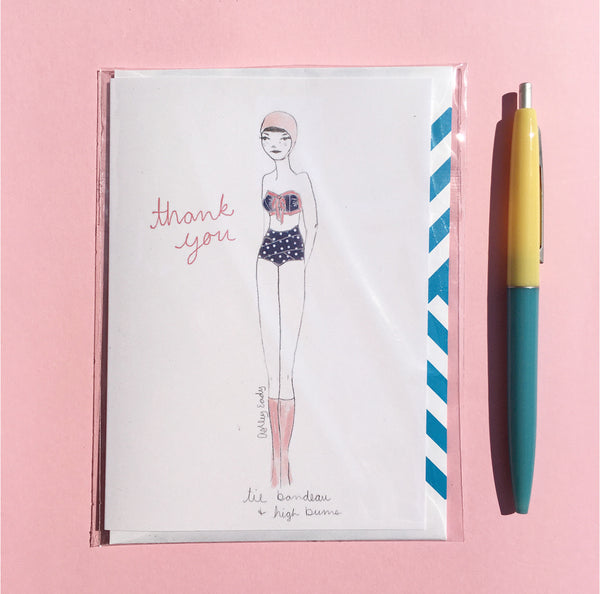 thank
you
Ashley Eardy
tie bandeau
+ high bums